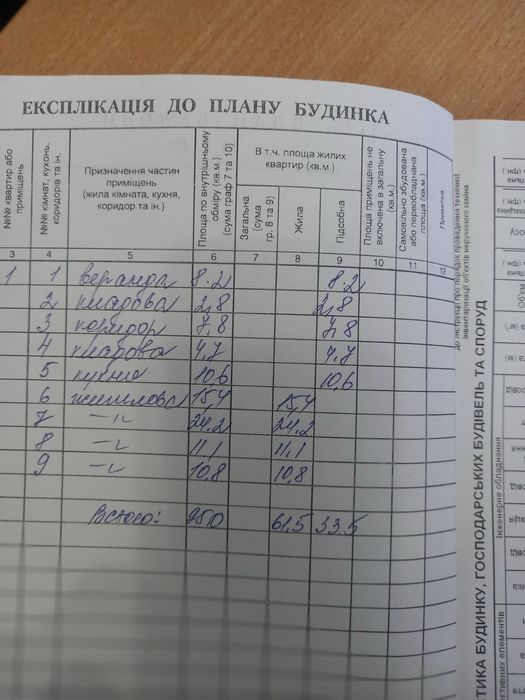 ЕКСПЛІКАЦІЯ ДО ПЛАНУ БУДИНКА
№№ квартир або приміщень
№№ кімнат, кухонь, коридорів та ін.
Призначення частин приміщень (жила кімната, кухня, коридор та ін.)
Площа по внутрішньому обміру (кв.м.) (сума граф 7 та 10)
В т.ч. площа жилих квартир (кв.м.)
Загальна (сума гр. 8 та 9)
Жила
Підсобна
Площа приміщень не включена в загальну (кв.м.)
Самовільно збудована або переобладнана площа (кв.м.)
Примітка
3 4 5 6 7 8 9 10 11 12
1 1 веранда 8.2 8.2
2 кладова 2,8 2,8
3 коридор 7,8 7,8
4 кладова 4,7 4,7
5 кухня 10,6 10,6
6 житлова 15,4 15,4
7 —"— 24.2 24.2
8 —"— 11,1 11,1
9 —"— 10,8 10,8
Всього: 95.0 61,5 33.5
до Інструкції про порядок проведення технічної
інвентаризації об'єктів нерухомого майна
ТИКА БУДИНКУ, ГОСПОДАРСЬКИХ БУДІВЕЛЬ ТА СПОРУД
Інженерне обладнання